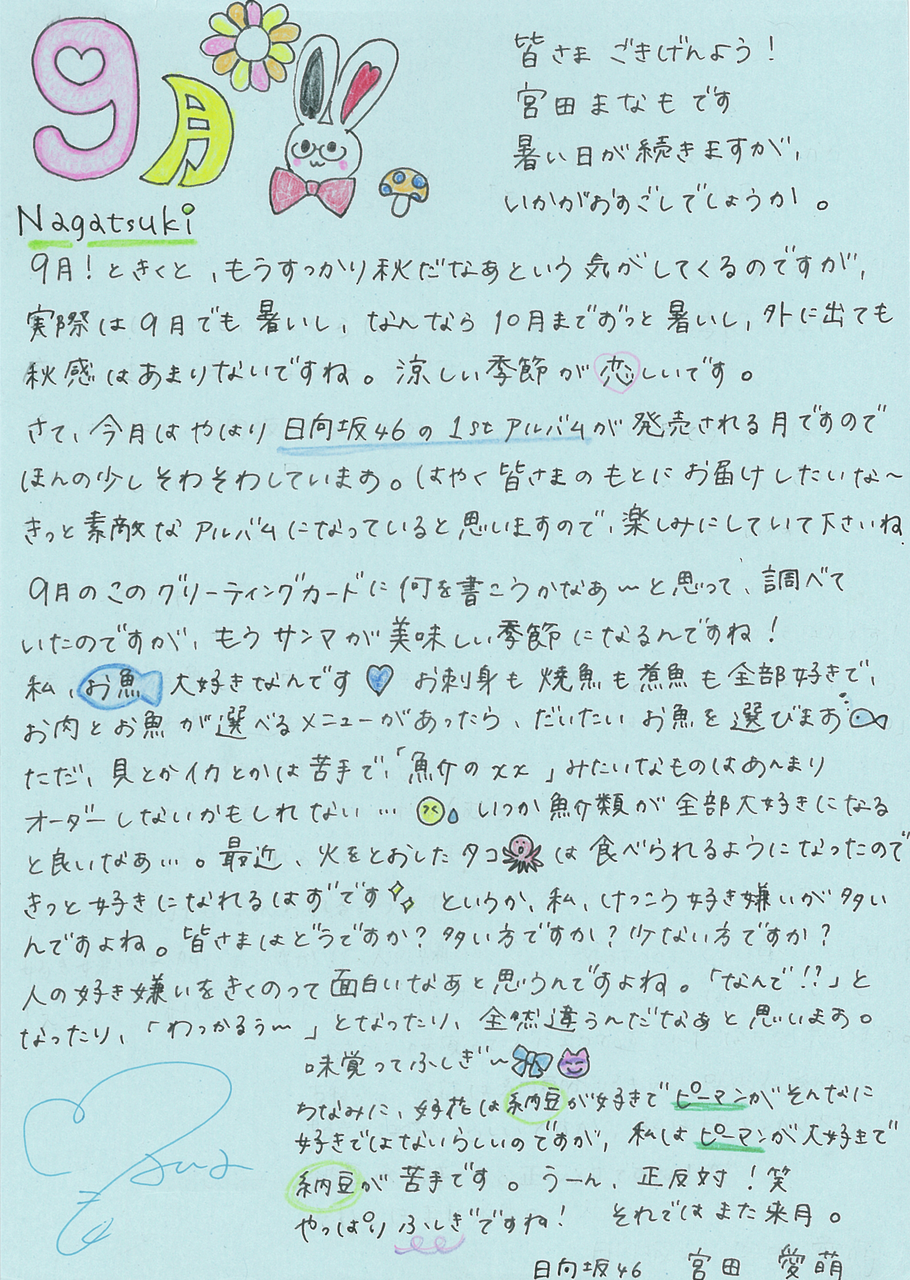 9月
皆さま ごきげんよう！
宮田まなもです
暑い日が続きますが、
いかがおすごしでしょうか。
Nagatsuki
9月！ときくと、もうすっかり秋だなあという気がしてくるのですが、
実際は9月でも暑いし、なんなら10月までずっと暑いし、外に出ても
秋感はあまりないですね。涼しい季節が恋しいです。
さて、今月はやはり日向坂46の1stアルバムが発売される月ですので
ほんの少しそわそわしています。はやく皆さまのもとにお届けしたいな〜
きっと素敵なアルバムになっていると思いますので、楽しみにしていて下さいね。
9月のこのグリーティングカードに何を書こうかなあ〜と思って、調べて
いたのですが、もうサンマが美味しい季節になるんですね！
私、お魚大好きなんです お刺身も焼魚も煮魚も全部好きで、
お肉とお魚が選べるメニューがあったら、だいたいお魚を選びます
ただ、貝とかイカとかは苦手で、「魚介の××」みたいなものはあんまり
オーダーしないかもしれない… いつか魚介類が全部大好きになる
と良いなあ…。最近、火をとおしたタコは食べられるようになったので
きっと好きになれるはずです というか、私、けっこう好き嫌いが多い
んですよね。皆さまはどうですか？多い方ですか？少ない方ですか？
人の好き嫌いをきくのって面白いなあと思うんですよね。「なんで!?」と
なったり、「わっかるぅ〜」となったり、全然違うんだなぁと思います。
味覚ってふしぎ〜
ちなみに、好花は納豆が好きでピーマンがそんなに
好きではないらしいのですが、私はピーマンが大好きで
納豆が苦手です。うーん、正反対！笑
やっぱりふしぎですね！ それではまた来月。
日向坂46 宮田 愛萌